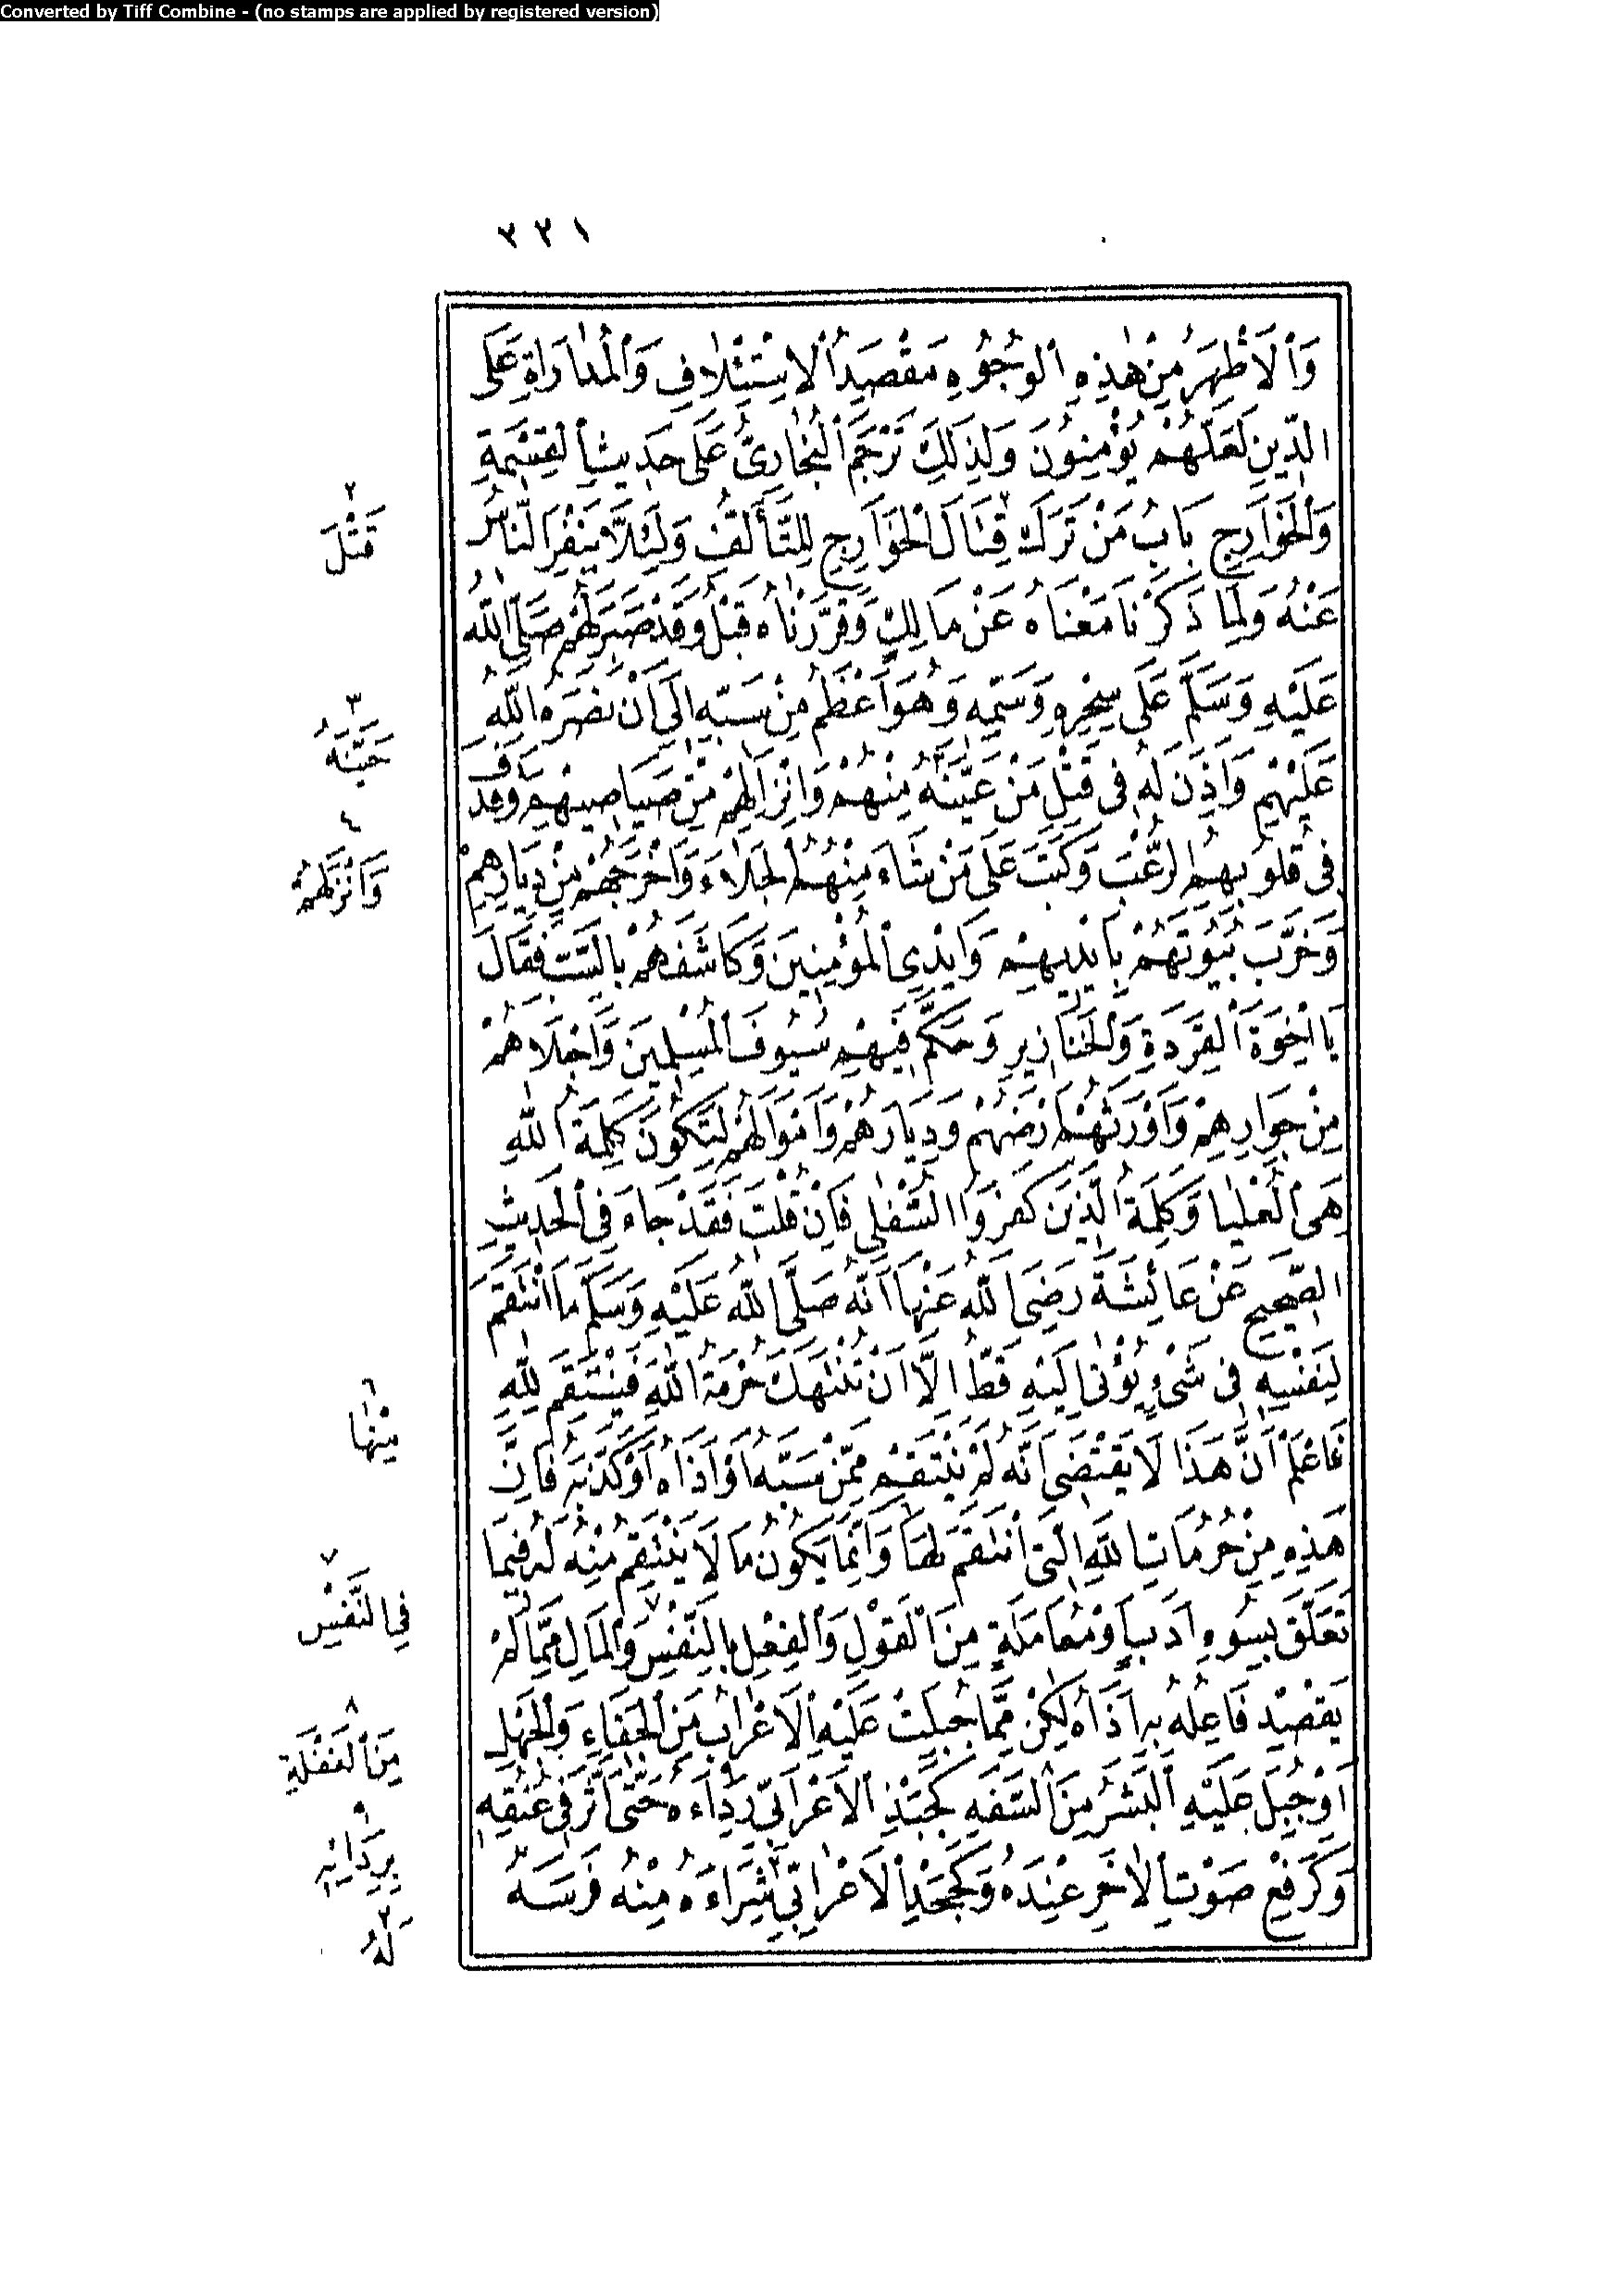 Converted by Tiff Combine - (no stamps are applied by registered version)
٢٣١
وَالْأَظْهَرُ مِنْ هٰذِهِ الْوُجُوهِ مَقْصِدُ الْاِسْتِئْلَافِ وَالْمُدَارَاةِ عَلَى
الدِّينِ لَعَلَّهُمْ يُؤْمِنُونَ وَلِذَلِكَ تَرْجَمَ الْبُخَارِىُّ عَلَى حَدِيثِ الْقِسْمَةِ
وَالْخَوَارِجِ بَابُ مَنْ تَرَكَ قِتَالَ الْخَوَارِجِ لِلتَّأَلُّفِ وَلِئَلَّا يَنْفِرَ النَّاسُ
عَنْهُ وَلِمَا ذَكَرْنَا مَعْنَاهُ عَنْ مَالِكٍ وَقَرَّرْنَاهُ قَبْلُ وَقَدْ صَبَرَ لَهُمْ صَلَّى اللهُ
عَلَيْهِ وَسَلَّمَ عَلَى سِحْرِهِ وَسَمِّهِ وَهُوَ أَعْظَمُ مِنْ سَبِّهِ إِلَى أَنْ نَصَرَهُ اللهُ
عَلَيْهِمْ وَأَذِنَ لَهُ فِى قَتْلِ مَنْ عَيَّنَهُ مِنْهُمْ وَإِنْزَالِهِمْ مِنْ صَيَاصِيهِمْ وَقَذَفَ
فِى قُلُوبِهِمُ الرُّعْبَ وَكَتَبَ عَلَى مَنْ شَاءَ مِنْهُمُ الْجَلَاءَ وَأَخْرَجَهُمْ مِنْ دِيَارِهِمْ
وَخَرَّبَ بُيُوتَهُمْ بِأَيْدِيهِمْ وَأَيْدِى الْمُؤْمِنِينَ وَكَاشَفَهُمْ بِالسَّبِّ فَقَالَ
يَا إِخْوَةَ الْقِرَدَةِ وَالْخَنَازِيرِ وَحَكَّمَ فِيهِمْ سُيُوفَ الْمُسْلِمِينَ وَأَجْلَاهُمْ
مِنْ جِوَارِهِمْ وَأَوْرَثَهُمْ أَرْضَهُمْ وَدِيَارَهُمْ وَأَمْوَالَهُمْ لِتَكُونَ كَلِمَةُ اللهِ
هِىَ الْعُلْيَا وَكَلِمَةُ الَّذِينَ كَفَرُوا السُّفْلَى فَإِنْ قُلْتَ فَقَدْ جَاءَ فِى الْحَدِيثِ
الصَّحِيحِ عَنْ عَائِشَةَ رَضِىَ اللهُ عَنْهَا أَنَّهُ صَلَّى اللهُ عَلَيْهِ وَسَلَّمَ مَا انْتَقَمَ
لِنَفْسِهِ فِى شَىْءٍ يُؤْتٰى إِلَيْهِ قَطُّ إِلَّا أَنْ تُنْتَهَكَ حُرْمَةُ اللهِ فَيَنْتَقِمَ لِلّٰهِ
فَاعْلَمْ أَنَّ هَذَا لَا يَقْتَضِى أَنَّهُ لَمْ يَنْتَقِمْ مِمَّنْ سَبَّهُ أَوْ آذَاهُ أَوْ كَذَّبَهُ فَإِنَّ
هَذِهِ مِنْ حُرُمَاتِ اللهِ الَّتِى انْتَقَمَ لَهَا وَإِنَّمَا يَكُونُ مَا لَا يَنْتَقِمُ مِنْهُ لَهُ فِيمَا
تَعَلَّقَ بِسُوءِ أَدَبٍ أَوْ مُعَامَلَةٍ مِنَ الْقَوْلِ وَالْفِعْلِ بِالنَّفْسِ وَالْمَالِ مِمَّا لَمْ
يَقْصِدْ فَاعِلُهُ بِهِ أَذَاهُ لٰكِنْ مِمَّا جُبِلَتْ عَلَيْهِ الْأَعْرَابُ مِنَ الْجَفَاءِ وَالْجَهْلِ
أَوْ جُبِلَ عَلَيْهِ الْبَشَرُ مِنَ السَّفَهِ كَجَبْذِ الْأَعْرَابِىِّ رِدَاءَهُ حَتَّى أَثَّرَ فِى عُنُقِهِ
وَكَرَفْعِ صَوْتِ الْآخَرِ عِنْدَهُ وَكَجَحْدِ الْأَعْرَابِىِّ شِرَاءَهُ مِنْهُ فَرَسَهُ
٢
قَتْلَ
٣
حَيَّنَهُ
٤
وَأَنْزَلَهُمْ
٦
مِنْهَا
٧
فِى النَّفْسِ
٨
مِنَ الْغَفْلَةِ
٩
بِرِدَائِهِ
٢
لَهُ